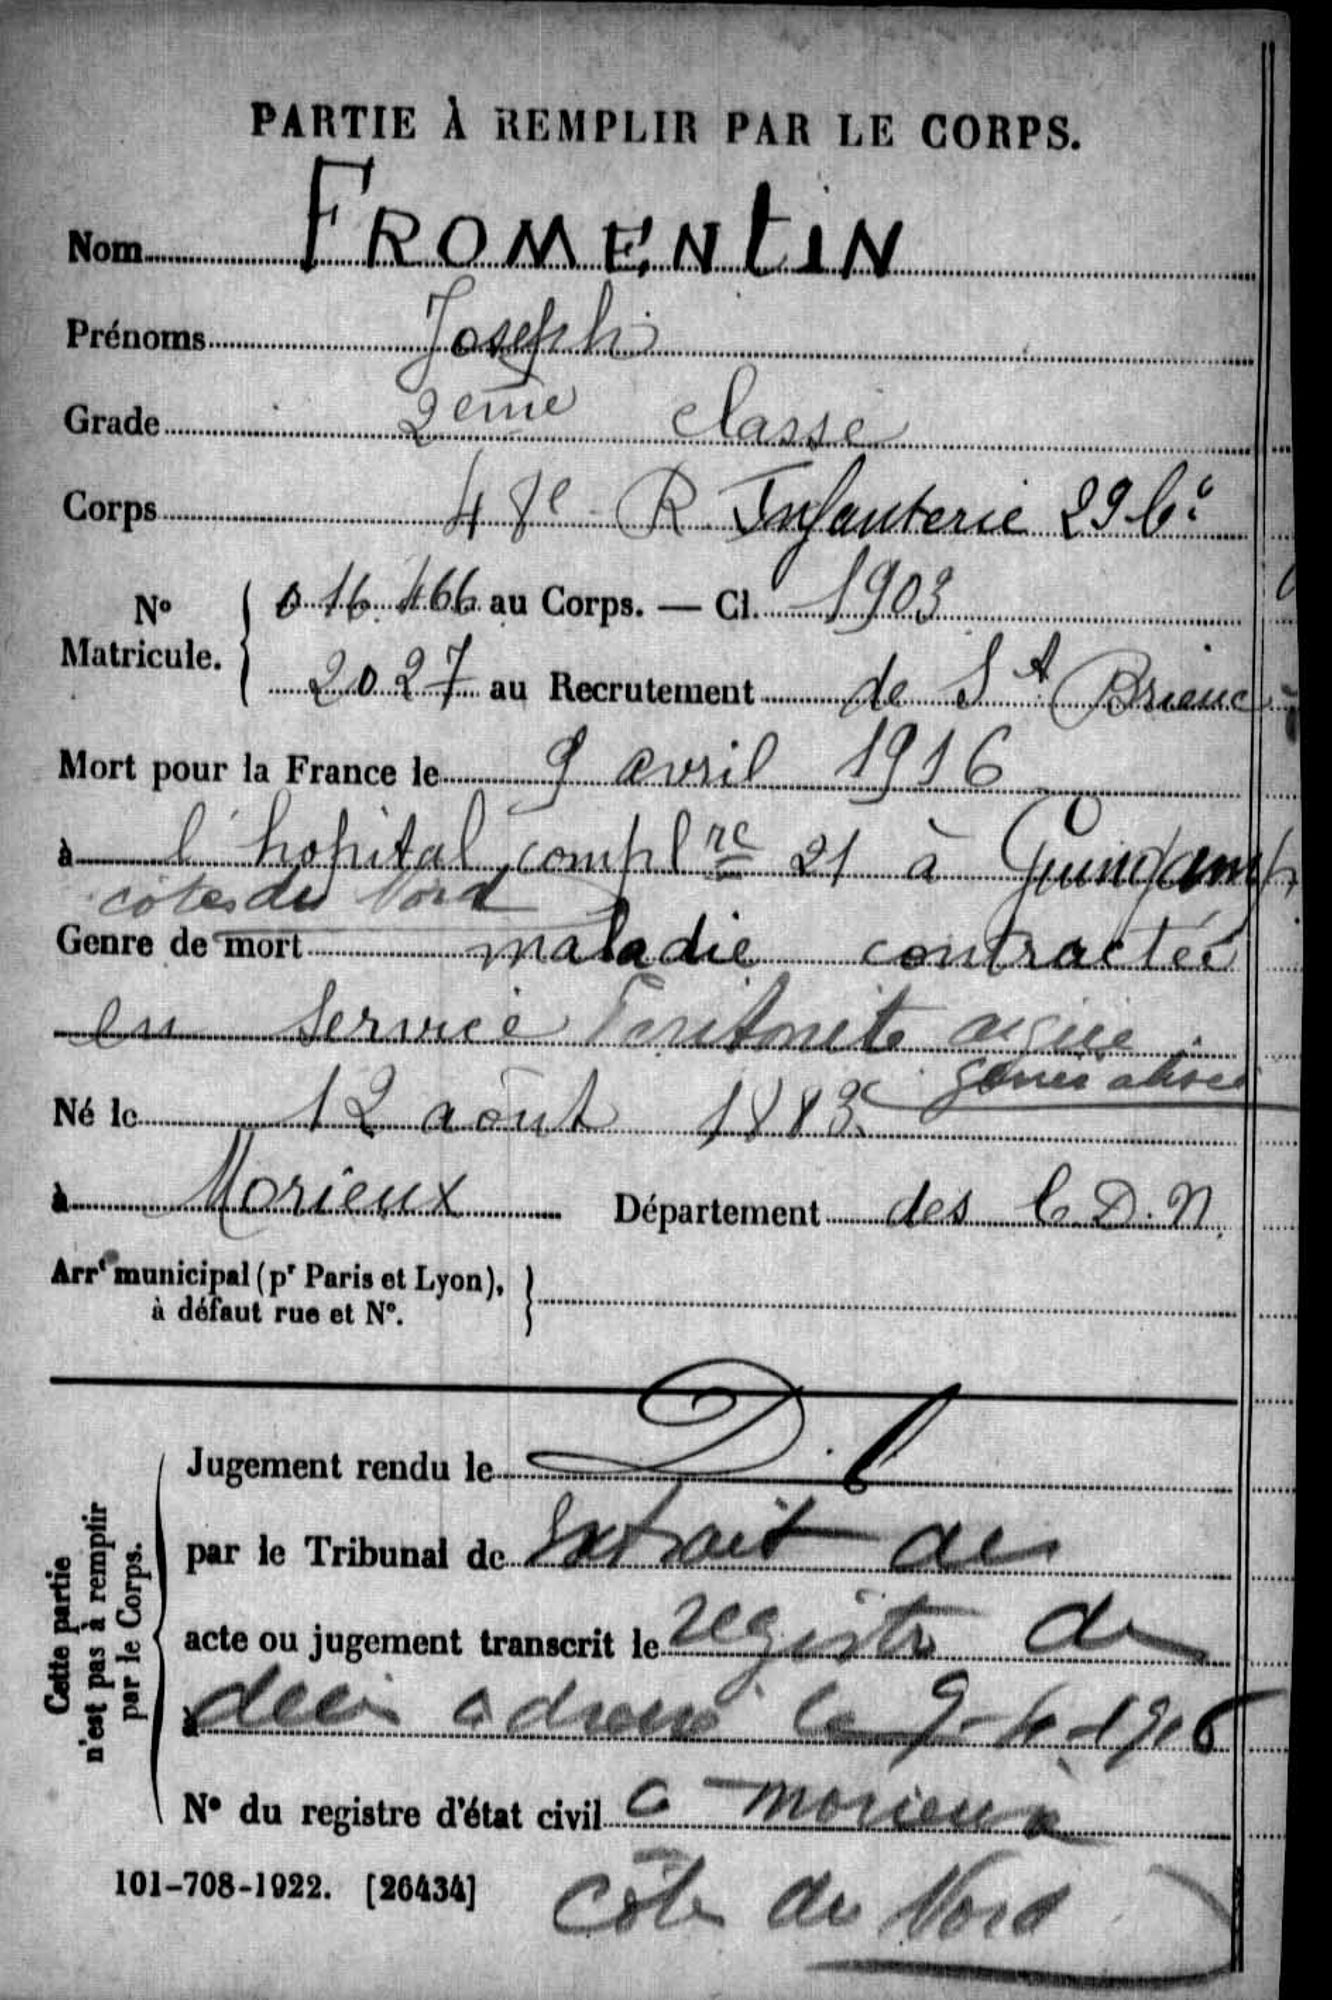 PARTIE À REMPLIR PAR LE CORPS.
Nom FROMENtiN
Prénoms Joseph
Grade 2eme classe
Corps 48e R Infanterie 29 Cie
No Matricule. 016.466 au Corps. — Cl. 1903
2027 au Recrutement de St Brieuc
Mort pour la France le 9 avril 1916
à l'hopital complre 21 à Guingamp
côtes du Nord
Genre de mort maladie contractée
en service Péritonite aigüe
généralisée
Né le 12 août 1883
à Morieux Département des C.D.N.
Arrt municipal (pr Paris et Lyon),
à défaut rue et No.
Cette partie
n'est pas à remplir
par le Corps.
Jugement rendu le
par le Tribunal de Extrait des
acte ou jugement transcrit le registre de
à décès adressé le 9-4-1916
No du registre d'état civil a morieux
101-708-1922. [26434]
Côte du Nord